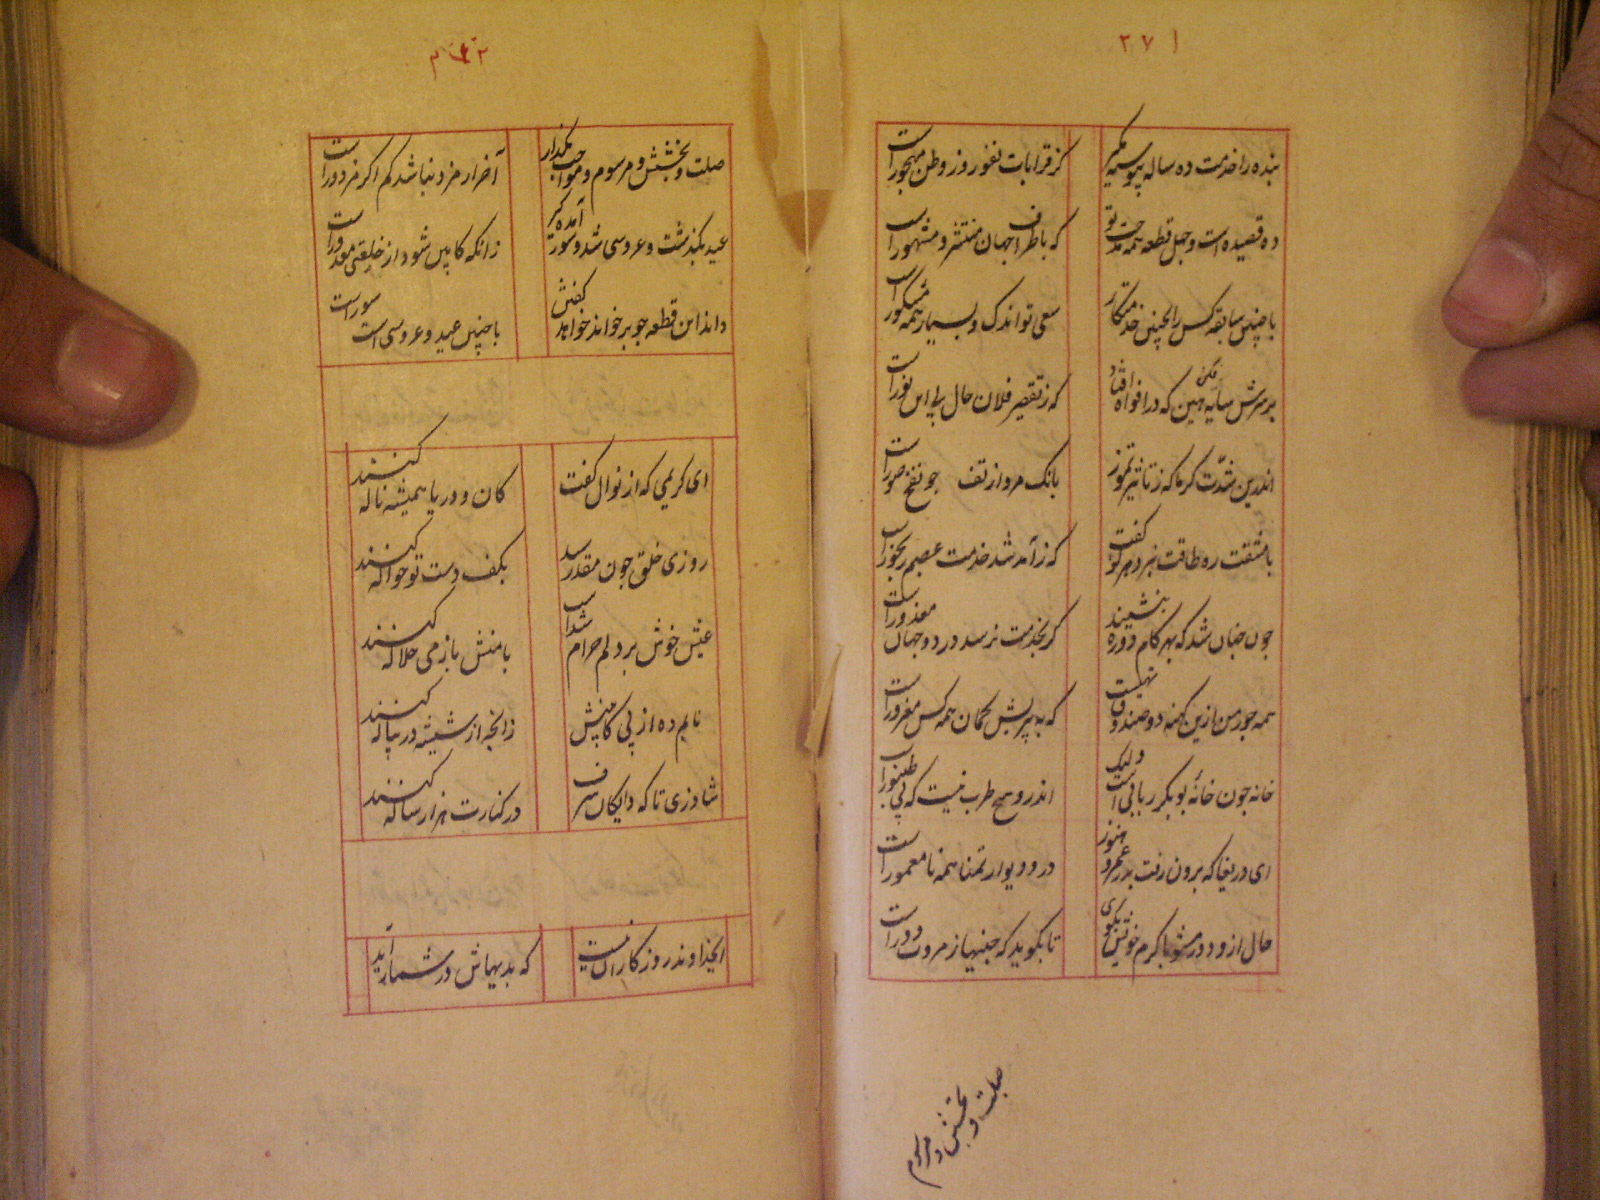 ۲۷۱
بنده را خدمت ده ساله پیوسته مگیر
کز قرابات نفور وز وطن مهجور است
ده قصیده است و چهل قطعه همه مدحت تو
که باطراف جهان منتشر و مشهور است
با چنین سابقه کس را چنین خدمتکار
سعی تو اندک و بسیار همه مشکور است
بر سرش سایه فکن هین که در افواه افتاد
که ز تقصیر فلان حال بی این نور است
اندرین شدت گرما که ز تاثیر تموز
بانک مرو از تف جو نفخ صور است
با مشقت ره طاقت سپرد هر کو گفت
که ز آمد شد خدمت عصبم رنجور است
چون چنان شد که بهر گام دو ره بنشیند
گر بخدمت نرسد در دو جهان معذور است
همه جور من ازین کهنه دو صندوق تهیست
که به پریش گمان همه کس مغرور است
خانه چون خانه بوبکر ربابی است ولیک
اندرو هیچ طرب نیست که بی طنبور است
ای دریغا که برون رفت بدر عمر و هنوز
در و دیوار تمنا همه نامعمور است
حال ازو دور مشو با کرم خویش بگوی
تا بگوید که چنینها ز مروت دور است
صلت و بخشش و مرسوم
صلت و بخشش و مرسوم و مواجب بگذار
آخر ار مزد نباشد کم اکر مزدور است
عید بگذشت و عروسی شد و سور آمده گیر
زانکه کابین شود از خلعتی معذور است
داند این قطعه چو برخواند خواهد گفتش
با چنین عید و عروسی است سور است
ای کریمی که از نوال کفت
کان و دریا همیشه ناله کنند
روزی خلق چون مقدر شد
بکف دست تو حواله کنند
عیش خوش بر دلم حرام شداست
با منش باز می حلاله کنند
نایم ده از پی کابینش
زانچه از شیشه در پیاله کنند
شاد زی تا که دایگان شرف
در کنارت هزار ساله کنند
ای خداوند روزگار آن نیست
که بدیهاش در شمار آید